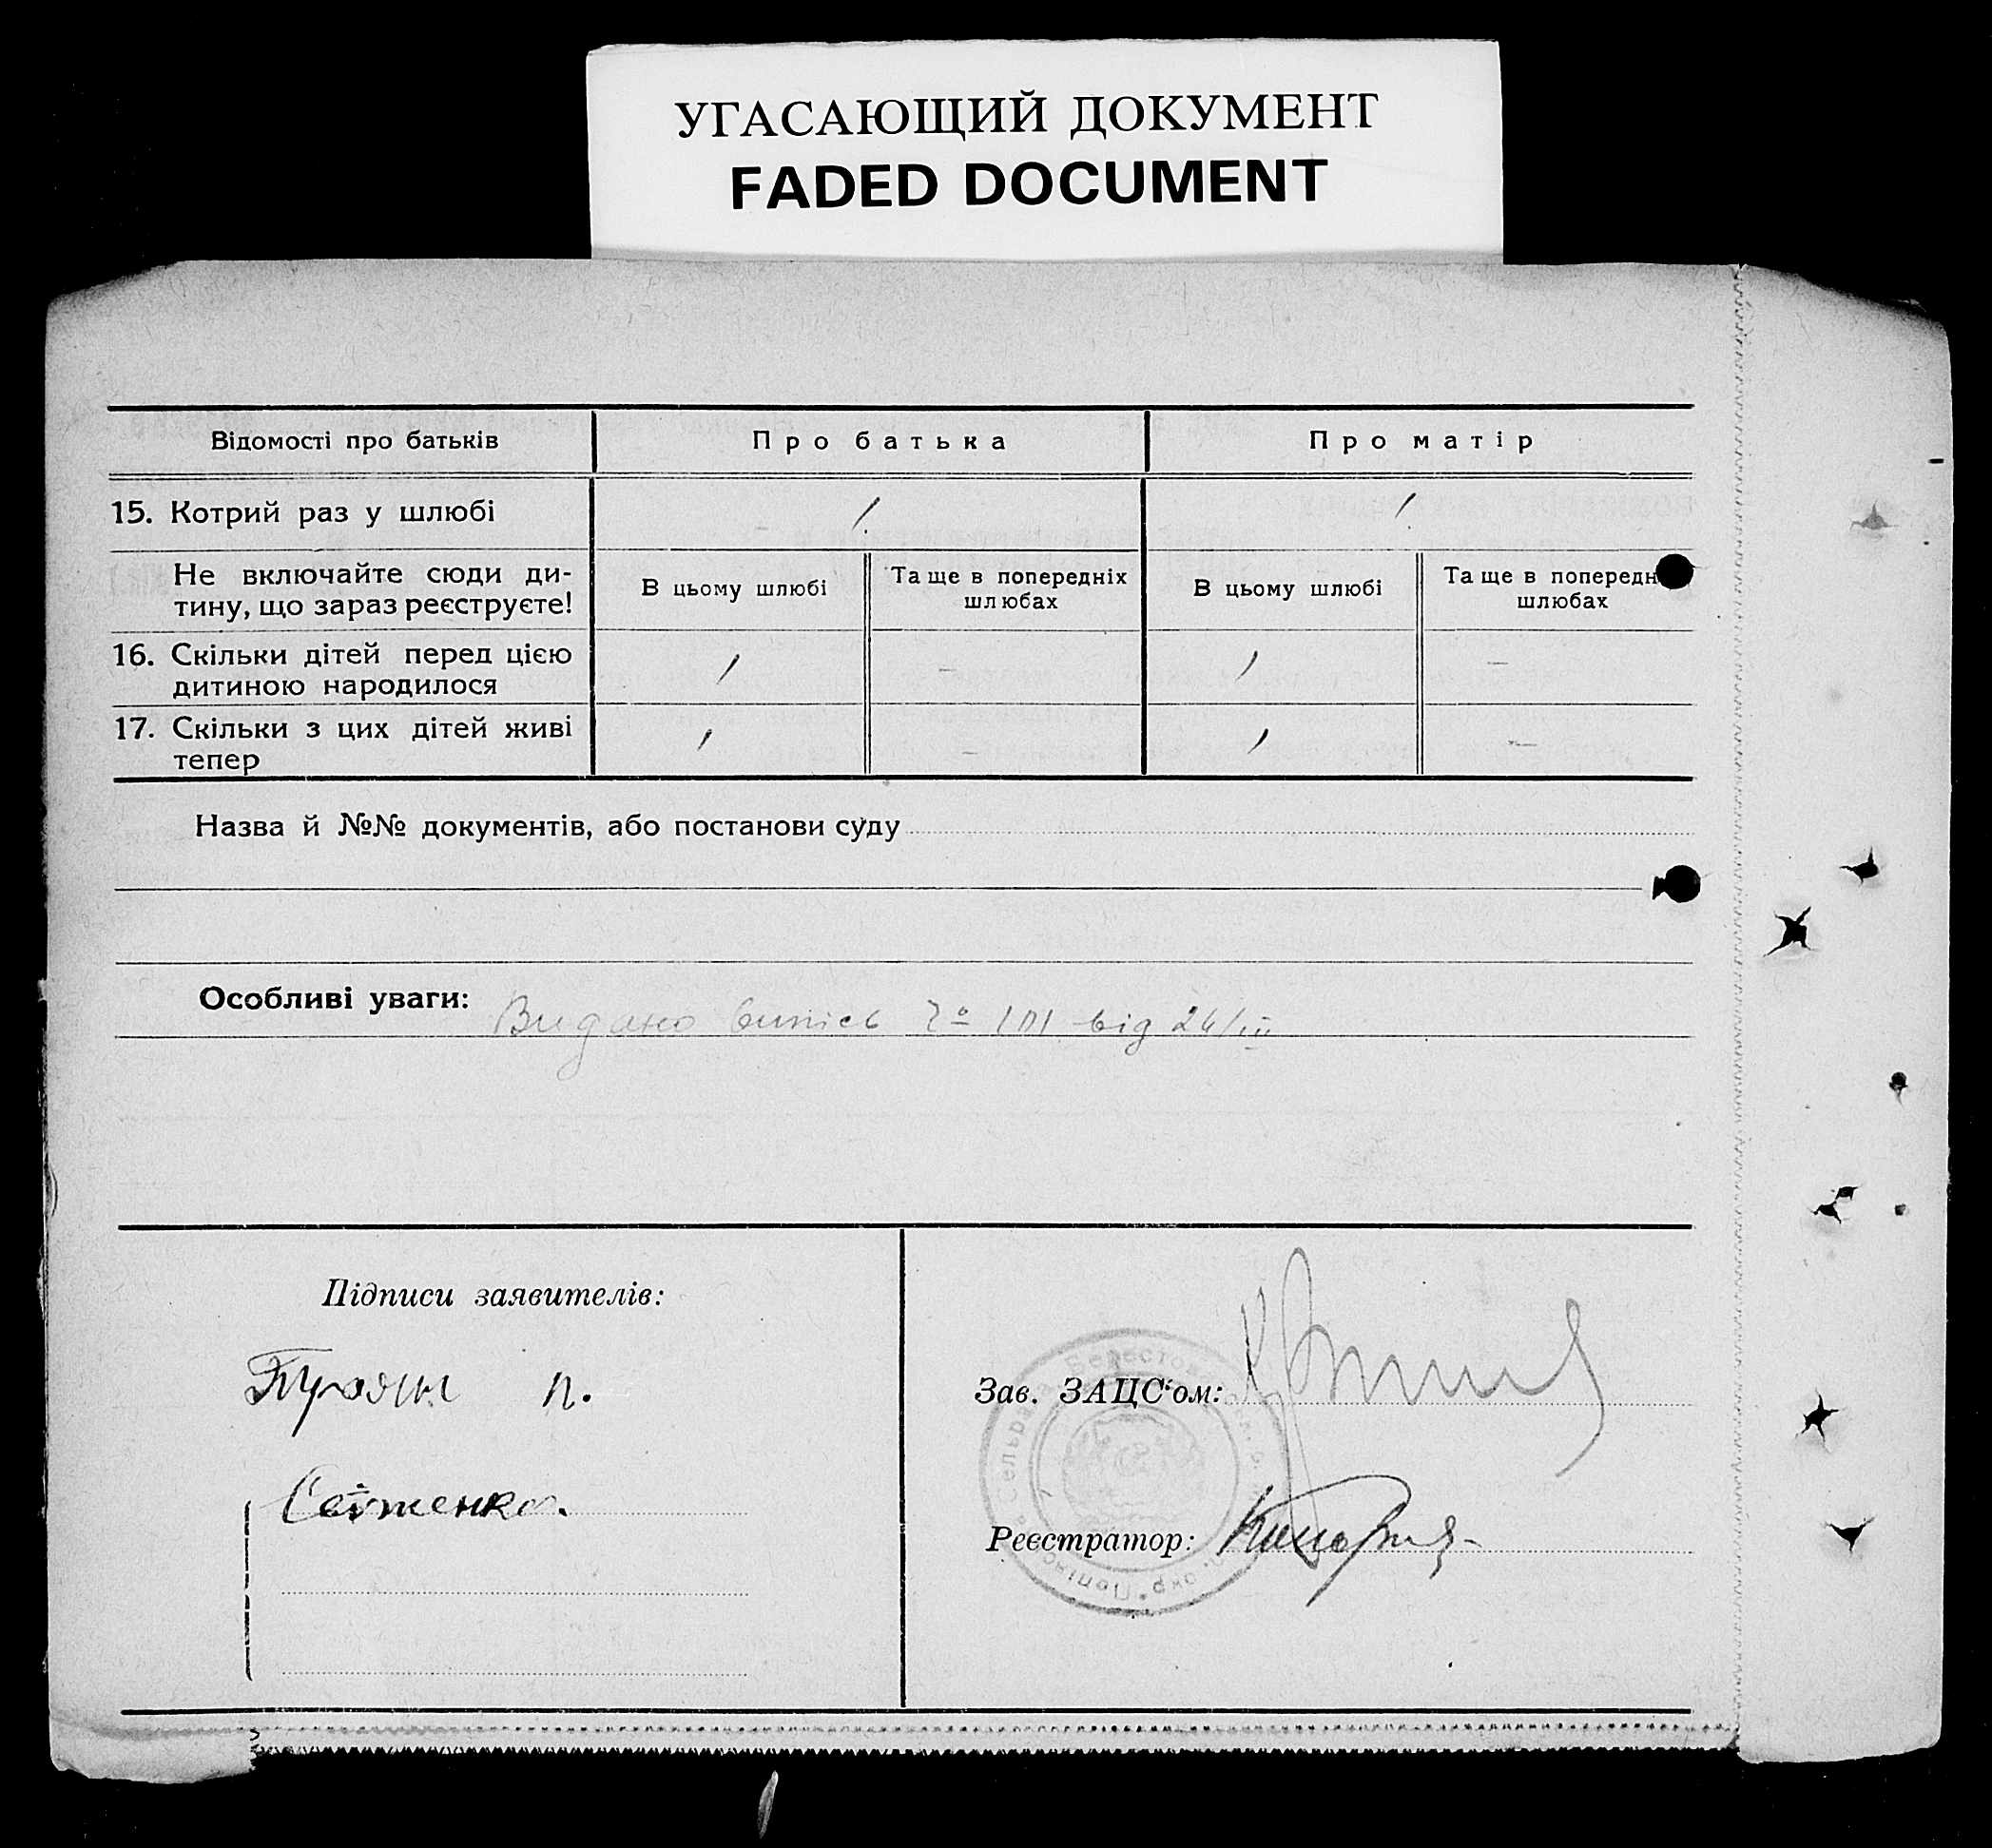 УГАСАЮЩИЙ ДОКУМЕНТ
FADED DOCUMENT
Відомості про батьків
Про батька
Про матір
15. Котрий раз у шлюбі
1
1
Не включайте сюди ди-
тину, що зараз реєструєте!
В цьому шлюбі
Та ще в попередніх
шлюбах
В цьому шлюбі
Та ще в попередн
шлюбах
16. Скільки дітей перед цією
дитиною народилося
1
–
1
–
17. Скільки з цих дітей живі
тепер
1
–
1
–
Назва й №№ документів, або постанови суду
Особливі уваги: Видано випись від
Підписи заявителів:
п.
Зав. ЗАЦС'ом:
Реєстратор: